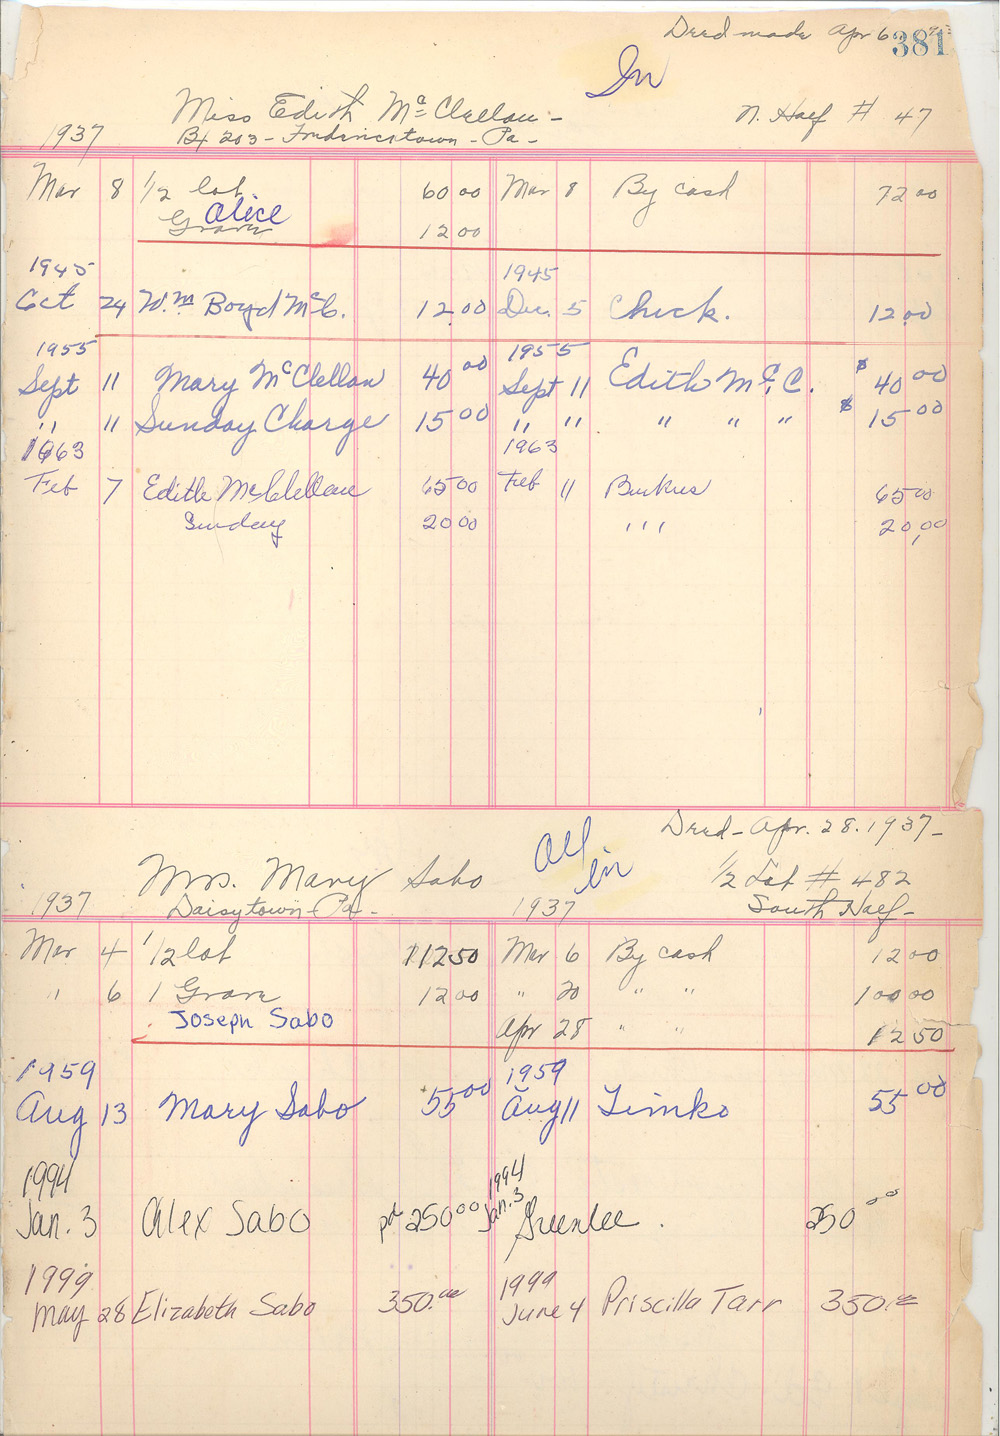 Deed made Apr 6 381
In
Miss Edith McClellan - N. Half # 47
1937 Bx 203 - Fredricktown - Pa -
Mar 8 1/2 lot 60 00 Mar 8 By cash 72 00
Alice
Grave 12 00
1945 1945
Oct 24 Wm Boyd McC. 12.00 Dec. 5 Check. 12.00
1955 1955
Sept 11 Mary McClellan 40 00 Sept 11 Edith McC. $ 40 00
" 11 Sunday Charge 15 00 " " " " " $ 15 00
1963 1963
Feb 7 Edith McClellan 65 00 Feb 11 Burkus 65 00
Sunday 20 00 ''' 20,00
Deed - Apr. 28. 1937 -
All in
Mrs. Mary Sabo 1/2 Lot # 482
1937 Daisytown - Pa - 1937 South Half -
Mar 4 1/2 lot 112 50 Mar 6 By cash 12 00
" 6 1 Grave 12 00 " 20 " " 100 00
Joseph Sabo Apr 28 " " 12 50
1959 1959
Aug 13 Mary Sabo 55 00 Aug 11 Timko 55 00
1994 1994
Jan. 3 Alex Sabo pd 250 00 Jan. 3 Greenlee . 250 00
1999 1999
May 28 Elizabeth Sabo 350.00 June 4 Priscilla Tarr 350.00